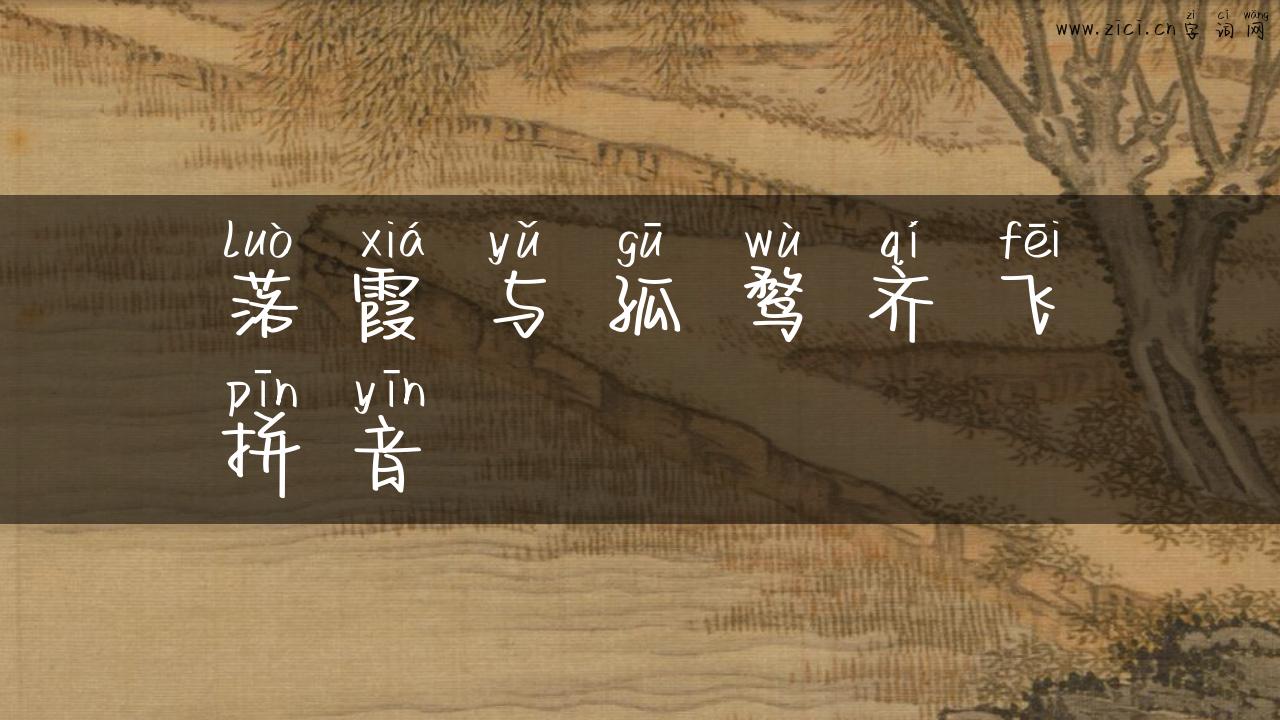 zì cí wǎng
www.zici.cn字 词 网
luò xiá yǔ gū wù qí fēi
落 霞 与 孤 鹜 齐 飞
pīn yīn
拼 音